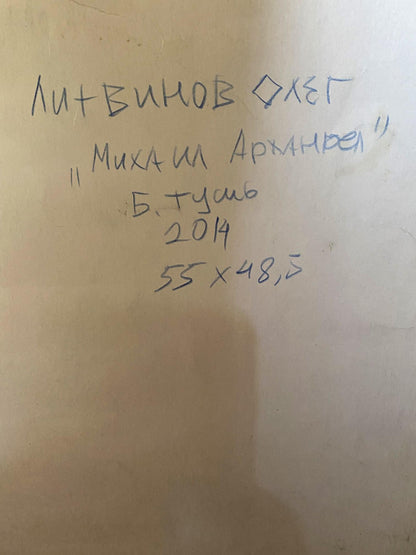 Литвинов Олег
„Михаил Архангел"
Б. тушь
2014
55 x 48,5